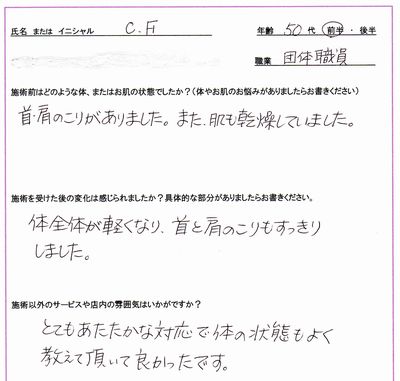 氏名 または イニシャル C.F 年齢 50 代 前半・後半
職業 団体職員
施術前はどのような体、またはお肌の状態でしたか?(体やお肌のお悩みがありましたらお書きください)
首・肩のこりがありました。また、肌も乾燥していました。
施術を受けた後の変化は感じられましたか?具体的な部分がありましたらお書きください。
体全体が軽くなり、首と肩のこりもすっきり
しました。
施術以外のサービスや店内の雰囲気はいかがですか?
とてもあたたかな対応で体の状態もよく
教えて頂いて良かったです。